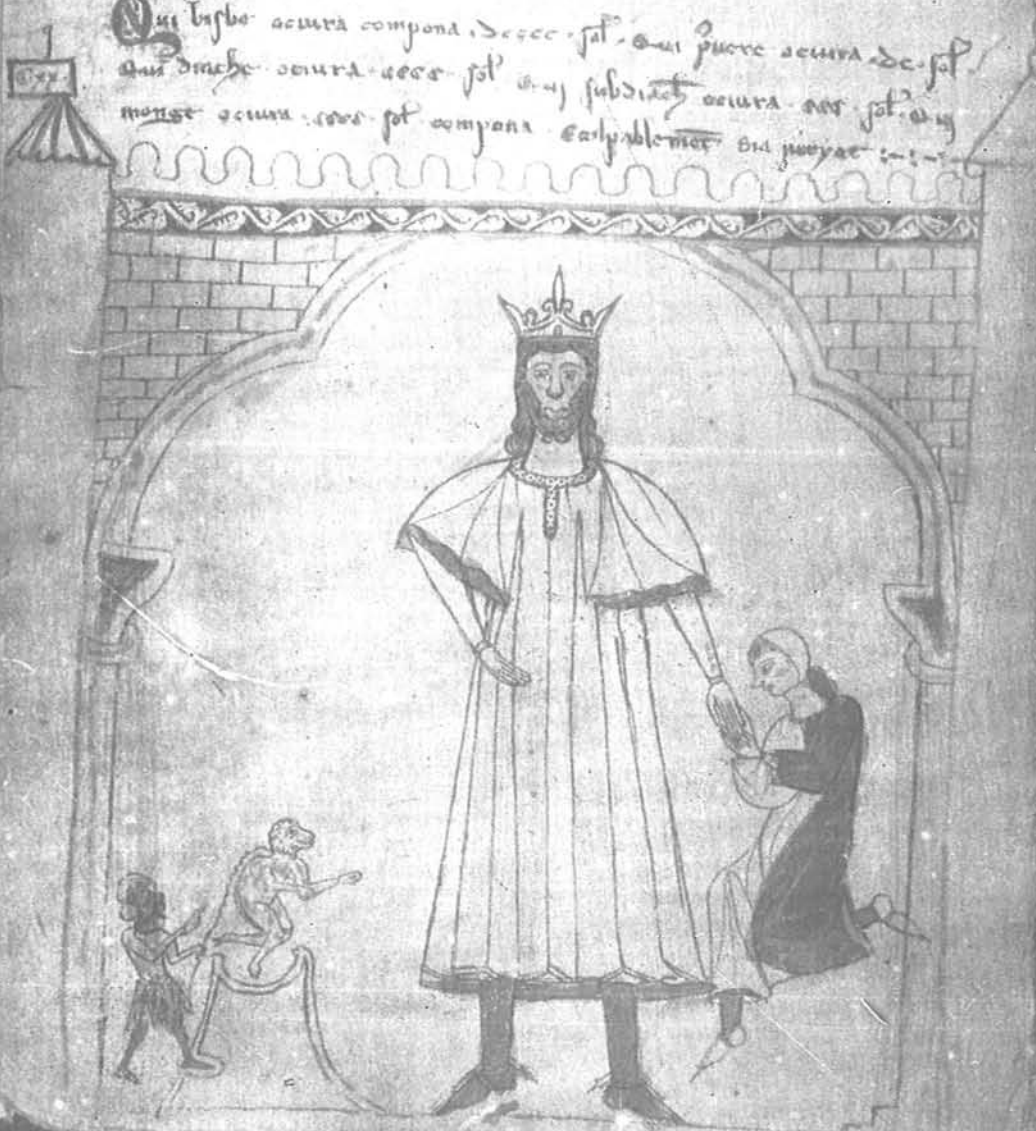 Qui bisbe aciura compona . dcccc . sol . Qui pvere aciura . dc . sol .
Qui diache aciura . cccc . sol Qui subdiach aciura . ccc . sol . Qui
monge aciura . cccc . sol compona Culpablement sia